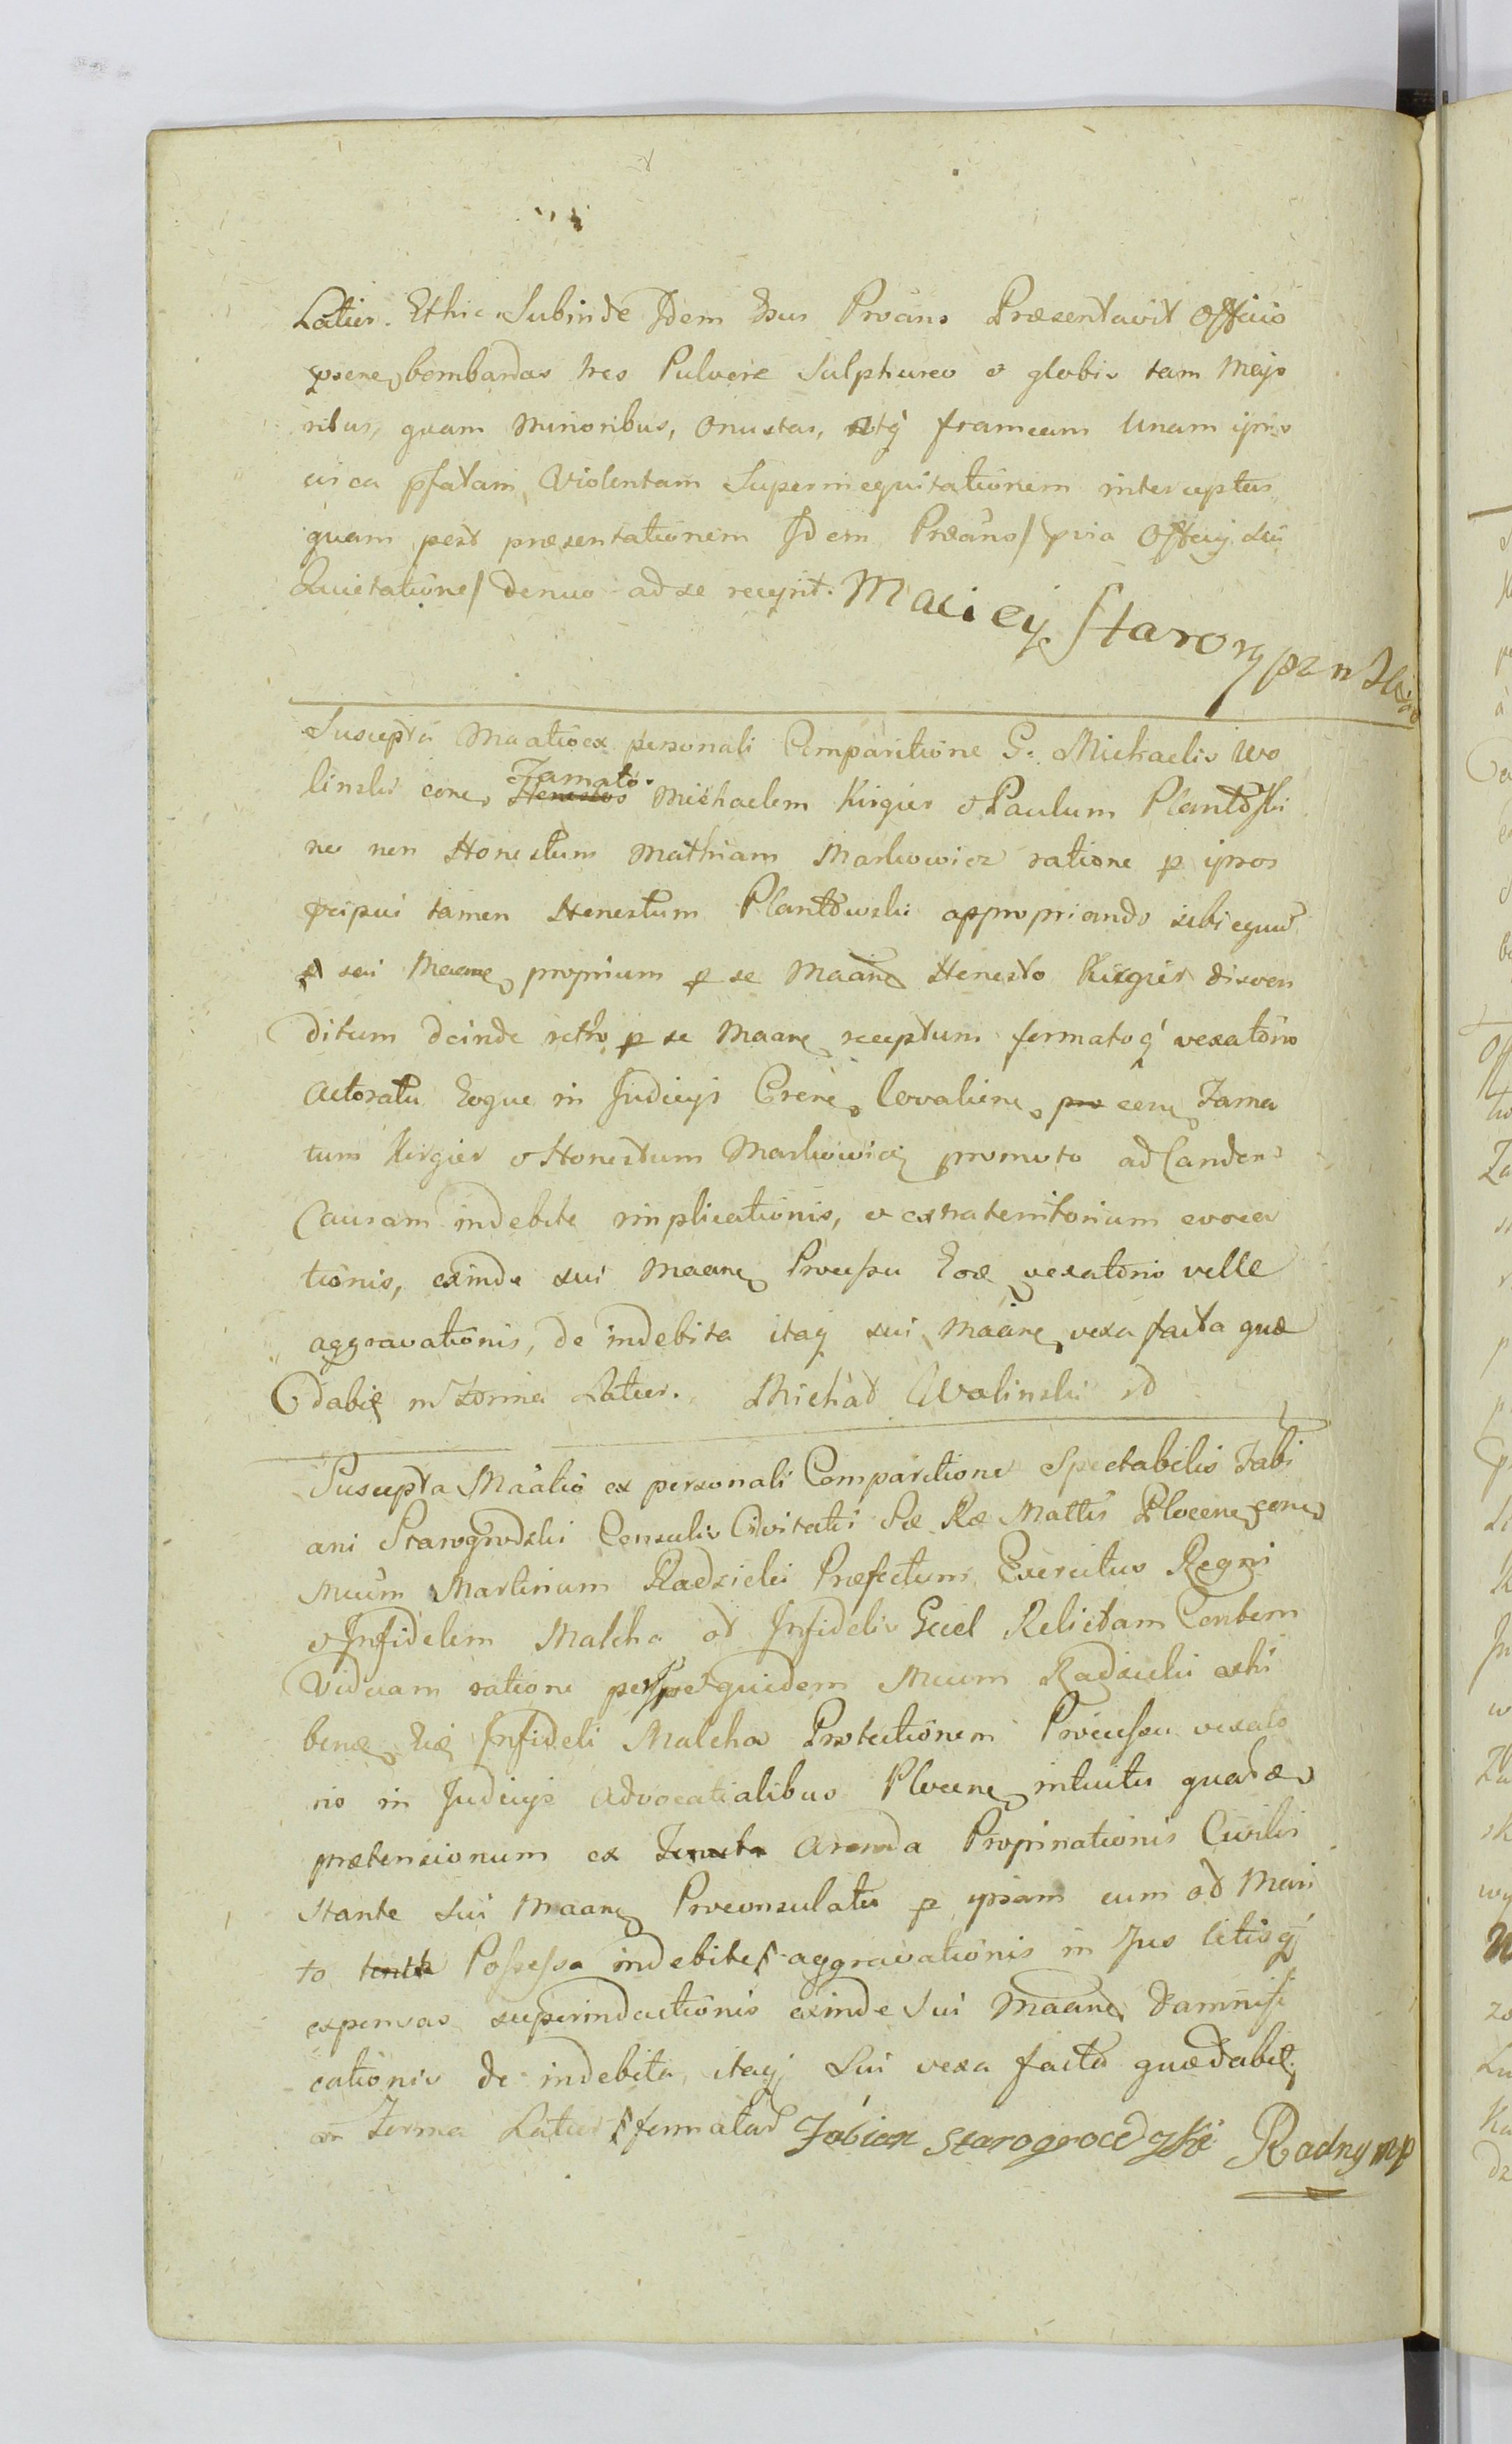 Latius. Et hic Subinde Idem Dnus Proans Præsentavit Officio
psenti bombardas tres Pulvere Sulphureo et globis tam Majo
ribus, quam Minoribus, onustas, atq frameam Unam ipsis
circa pfatam Violentam Superinequitationem interceptas
quam post præsentationem Idem Præans / pvia Officij sui
Quietatione / denuo ad se recepit. Maciey Starorypinski
Suscepta Maatio ex personali Comparitione G. Michaelis Wo
linski cone Famatos Honestos Michaelem Kirgier et Paulum Plantoski
nec non Honestum Mathiam Markowicz ratione p ipsos
pcipui tamen Honestum Plantowski appropriando sibi equum
sui Maane proprium p se Maane Honesto Kirgier disven
ditum deinde retro p se Maane receptum formatoq vexatorio
Actoratu Eoque in Judicijs Crene Covaliene pro cone Fama
tum Kirgier et Honestum Markowicz promoto ad Eandem
Causam indebite implicationis, et extraterritorium evoca
tionis, exinde sui Maane Processu Eoq vexatorio velle
aggravationis, de indebita itaq sui Maane vexa facta quæ
dabit in Forma Latius. Michał Wolinski
Suscepta Maatio ex personali Comparitione Spectabilis Fabi
ani Starogrodzki Consulis Civitatis Sæ Ræ Mattis Plocene cone
Mcum Martinum Radzicki Præfectum Exercitus Regni
et Infidelem Malcha od Infidelis Geiel Relictam Contem
Viduam ratione per quidem Mcum Radzicki exhi
benæ Eiq Infideli Malcha Protectionem Processu vexato
rio in Judicijs Advocatialibus Plocene intuitu quadæ
prætensionum ex arenda Propinationis Civilis
stante sui Maane Proconsulatu p ipsam cum od Mari
to Possessa indebite aggravationis in Jus litisq
expensas superinductionis exinde Sui Maane damnifi
cationis de indebita, itaq Sui vexa facta quæ dabit
in Forma Latius formatas Fabian Starogrodzki Radny mp